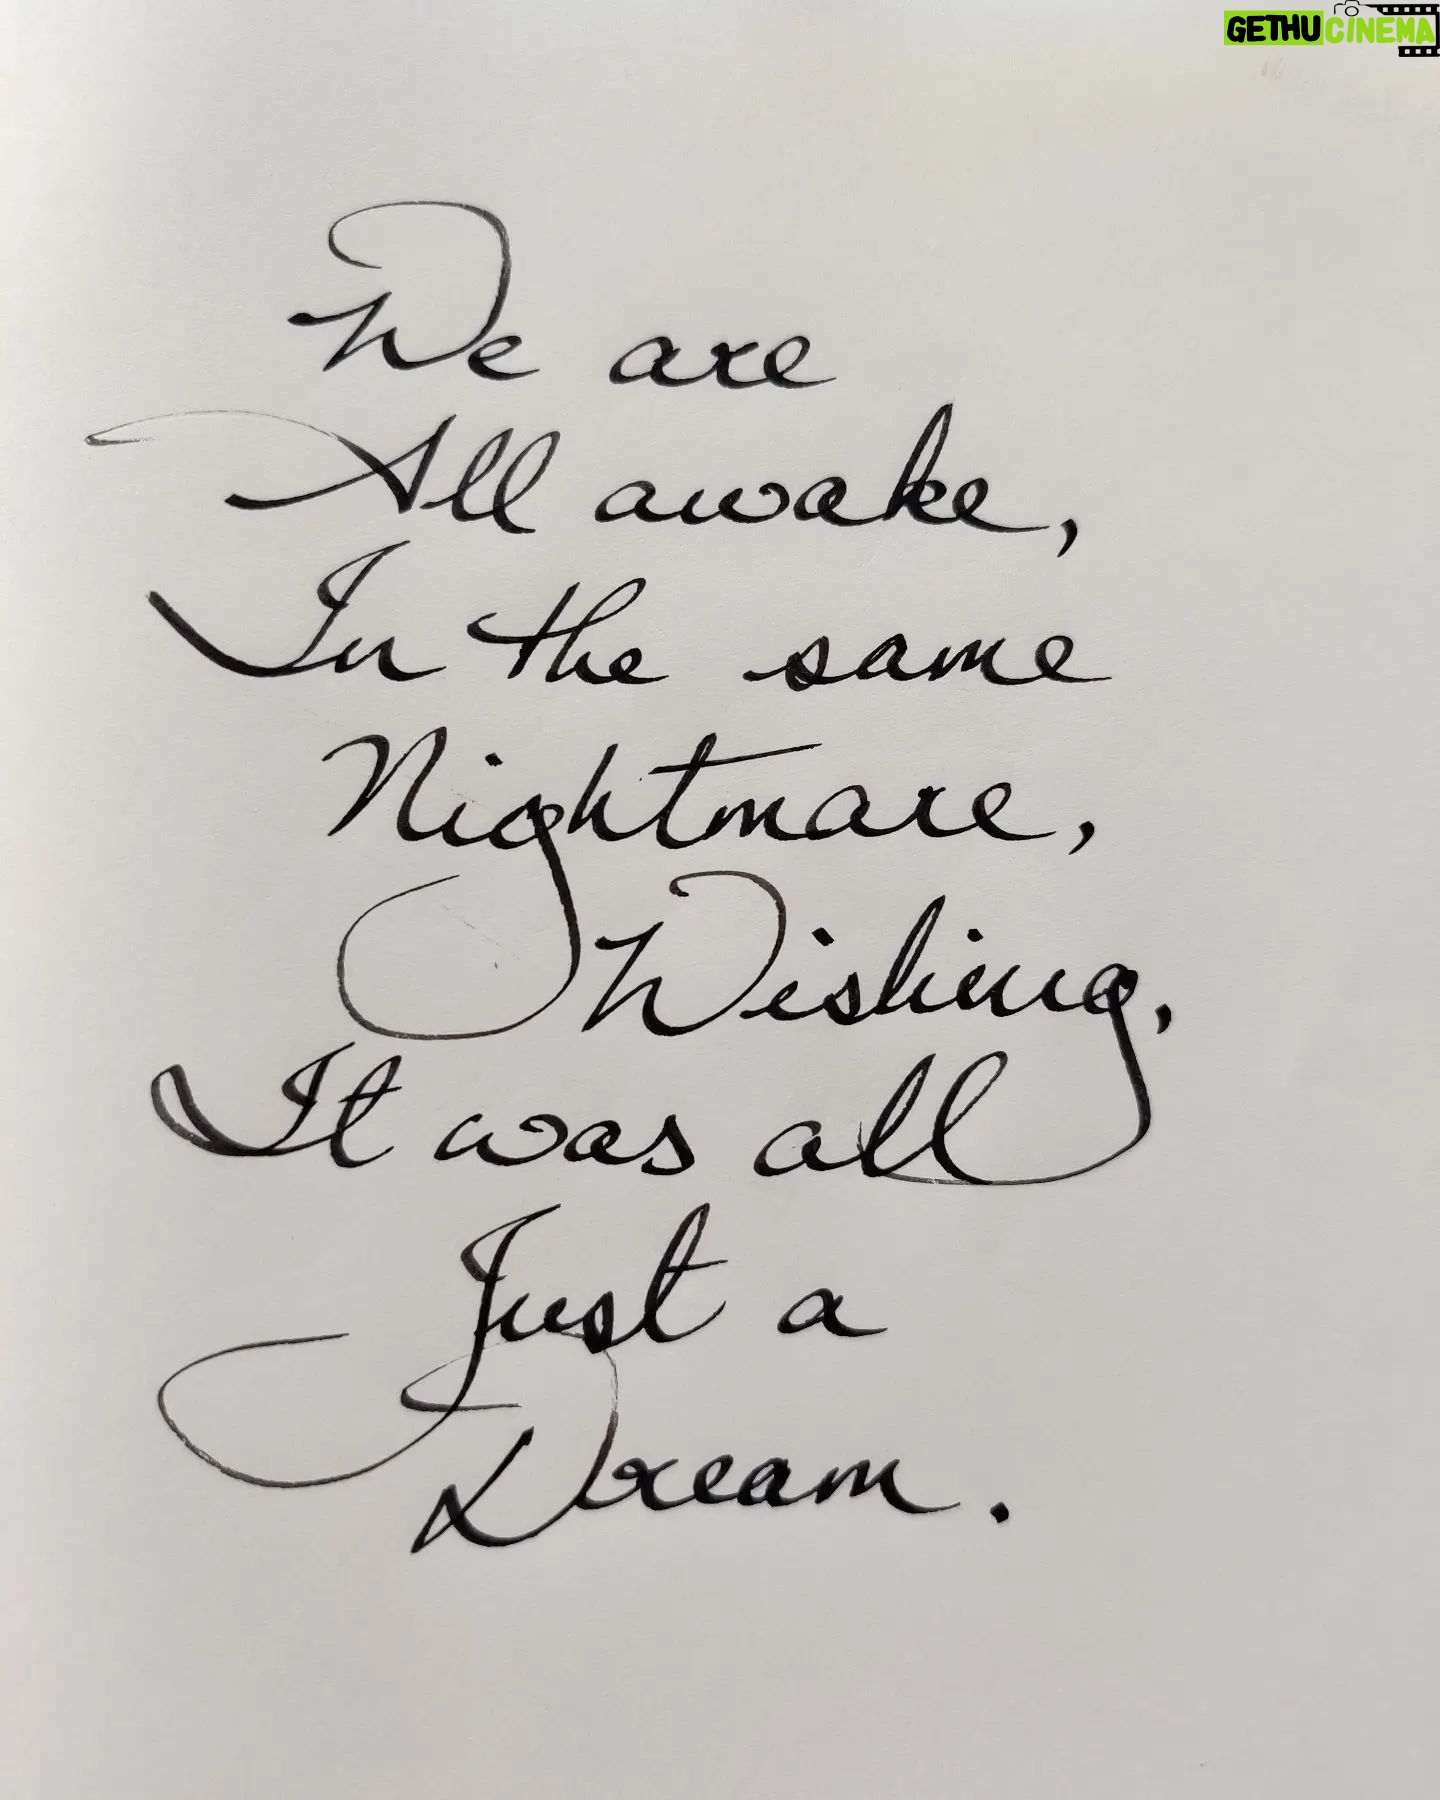 GETHUCINEMA
We are
All awake,
In the same
Nightmare,
Wishing,
It was all
Just a
Dream.